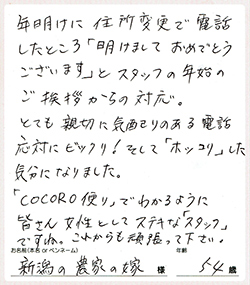 年明けに住所変更で電話
したところ「明けましておめでとう
ございます」とスタッフの年始の
ご挨拶からの対応。
とても親切に気配りのある電話
応対にビックリ!そして「ホッコリ」した
気分になりました。
「COCORO便り」でわかるように
皆さん女性としてステキな「スタッフ」
ですね。これからも頑張って下さい。
お名前(本名 or ペンネーム) 年齢
新潟の農家の嫁 様 54歳